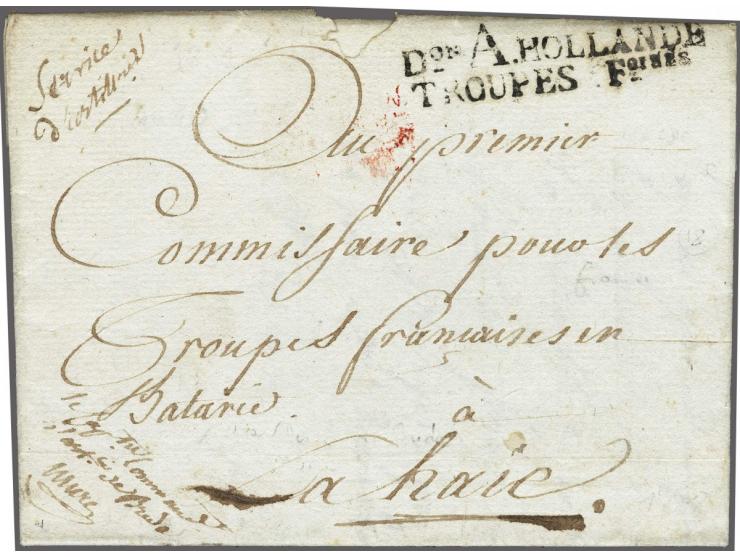 Service
d'artillerie
Don A. HOLLANDE
TROUPES F
Au premier
Commissaire pour les
Troupes francaises en
Batavie.
à
La haie.
Commande
de Breda